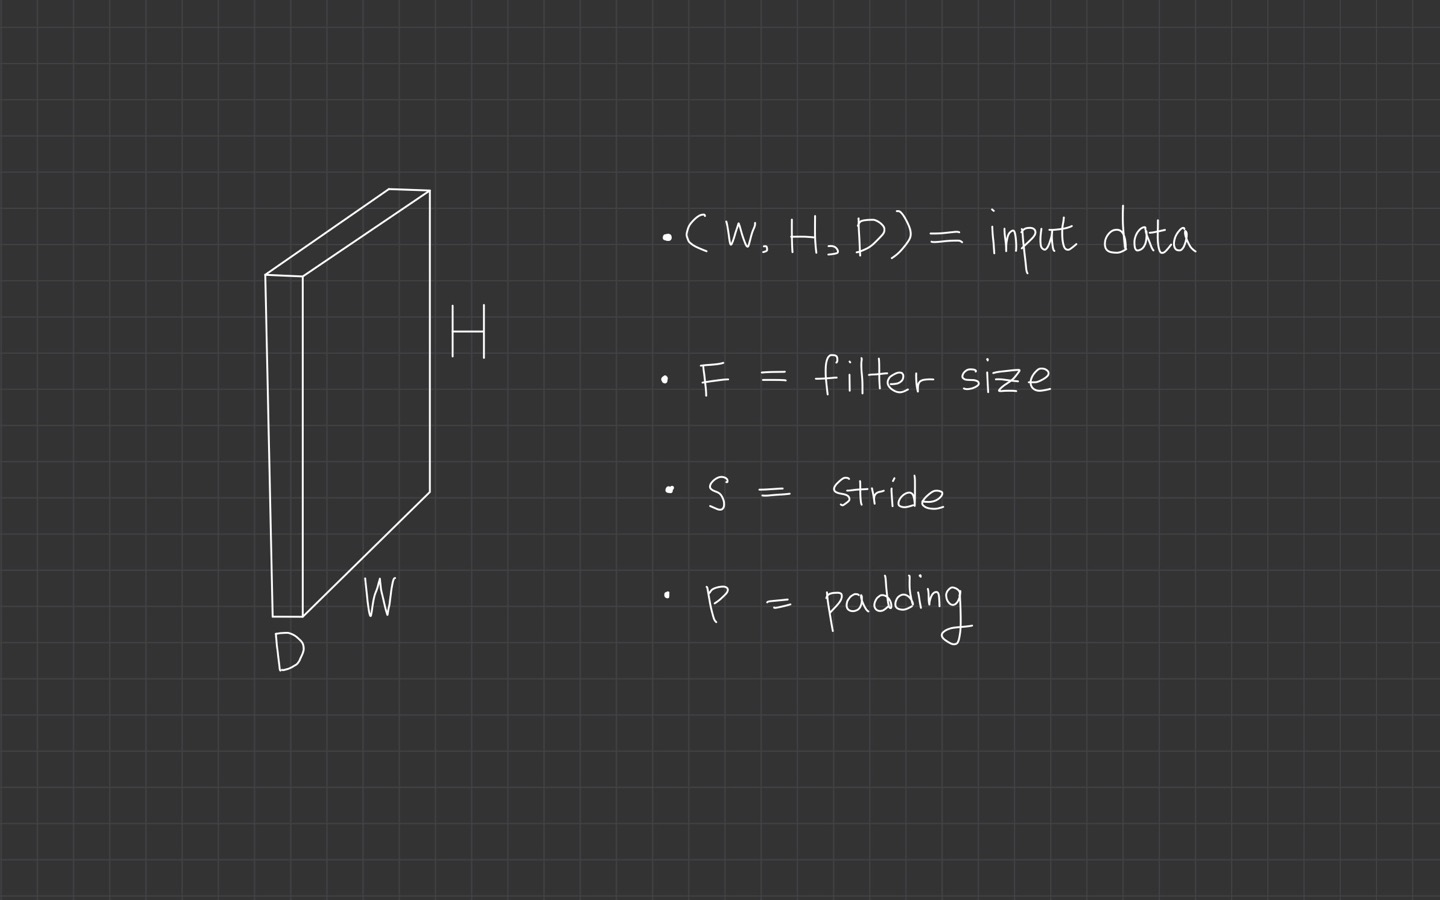 H
W
D
• (W, H, D) = input data
• F = filter size
• S = stride
• P = padding